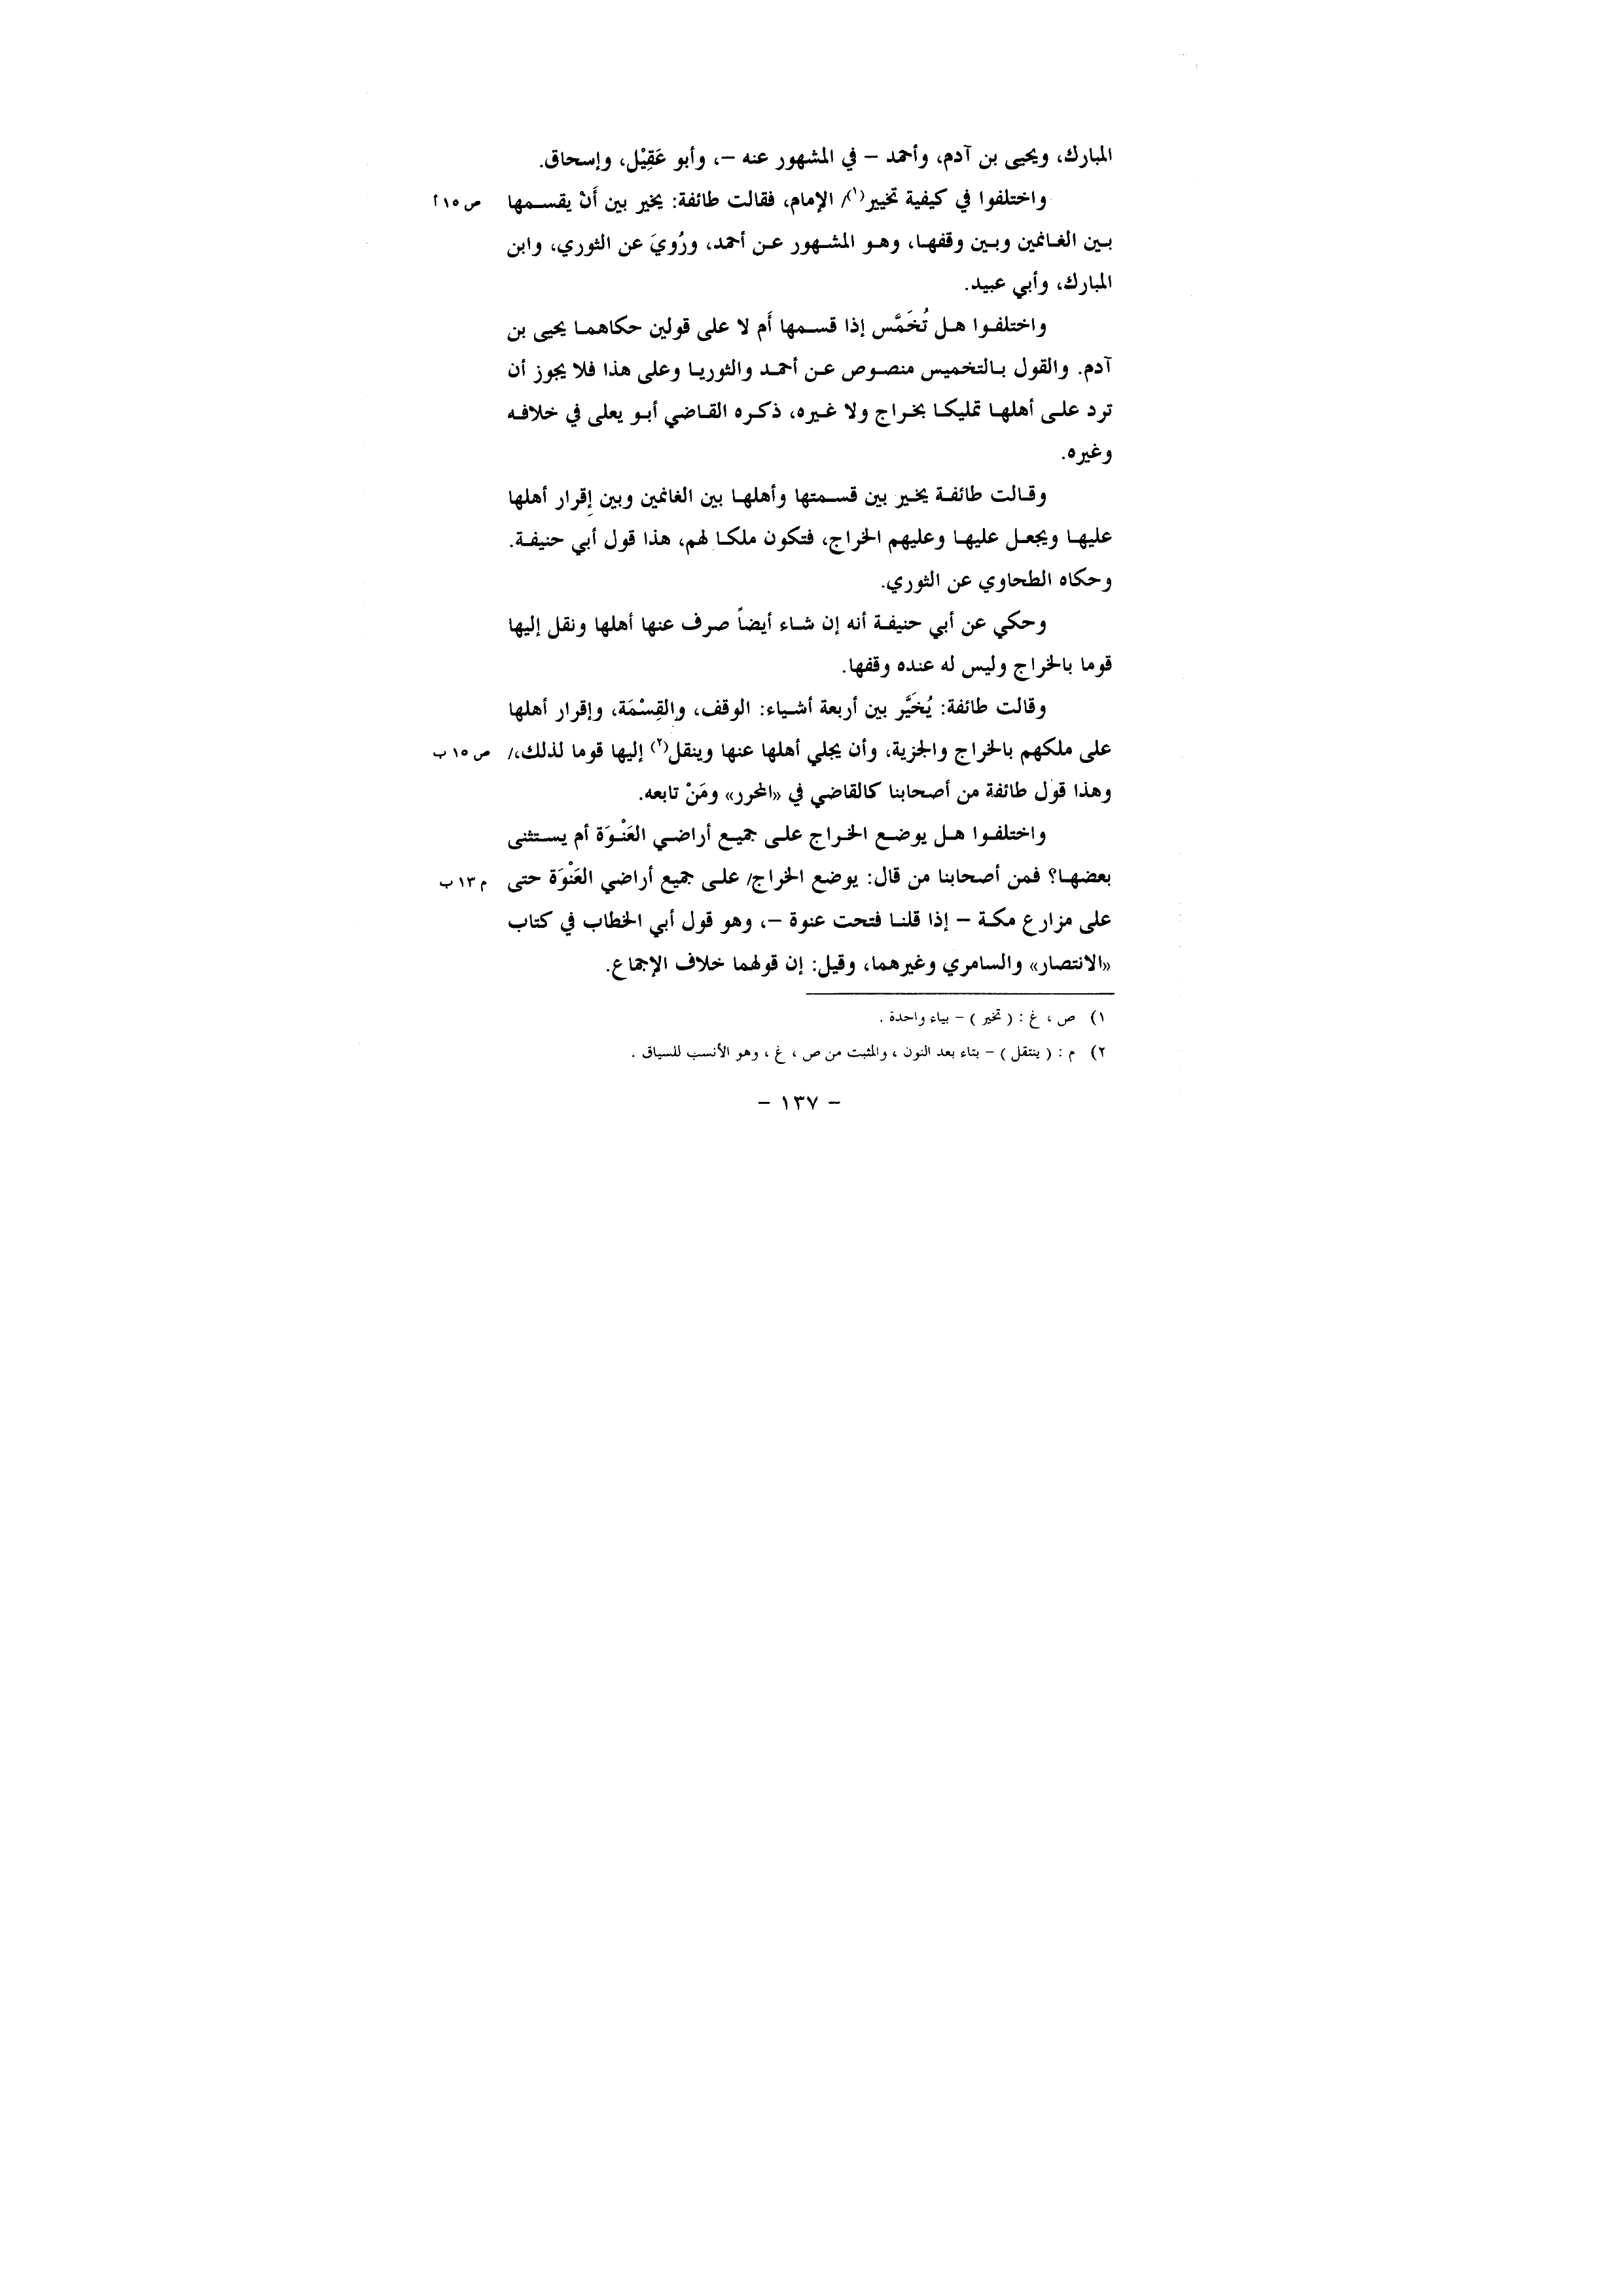 المبارك، ويحيى بن آدم، وأحمد – في المشهور عنه –، وأبو عَقِيْل، وإسحاق.
واختلفوا في كيفية تخيير(١)/ الإمام، فقالت طائفة: يخير بين أَنْ يقسمها ص ١٥ أ
بين الغانمين وبين وقفها، وهو المشهور عن أحمد، ورُويَ عن الثوري، وابن
المبارك، وأبي عبيد.
واختلفوا هل تُخَمَّس إذا قسمها أَم لا على قولين حكاهما يحيى بن
آدم. والقول بالتخميس منصوص عن أحمد والثوريا وعلى هذا فلا يجوز أن
ترد على أهلها تمليكا بخراج ولا غيره، ذكره القاضي أبو يعلى في خلافه
وغيره.
وقالت طائفة يخير بين قسمتها وأهلها بين الغانمين وبين إقرار أهلها
عليها ويجعل عليها وعليهم الخراج، فتكون ملكا لهم، هذا قول أبي حنيفة.
وحكاه الطحاوي عن الثوري.
وحكي عن أبي حنيفة أنه إن شاء أيضاً صرف عنها أهلها ونقل إليها
قوما بالخراج وليس له عنده وقفها.
وقالت طائفة: يُخَيَّر بين أربعة أشياء: الوقف، والقِسْمَة، وإقرار أهلها
على ملكهم بالخراج والجزية، وأن يجلي أهلها عنها وينقل(٢) إليها قوما لذلك،/ ص ١٥ ب
وهذا قول طائفة من أصحابنا كالقاضي في «المحرر» ومَنْ تابعه.
واختلفوا هل يوضع الخراج على جميع أراضي العَنْوَة أم يستثنى
بعضها؟ فمن أصحابنا من قال: يوضع الخراج/ على جميع أراضي العَنْوَة حتى م ١٣ ب
على مزارع مكة – إذا قلنا فتحت عنوة –، وهو قول أبي الخطاب في كتاب
«الانتصار» والسامري وغيرهما، وقيل: إن قولهما خلاف الإجماع.
١) ص ، غ : ( تخير ) – بياء واحدة .
٢) م : ( ينتقل ) – بتاء بعد النون ، والمثبت من ص ، غ ، وهو الأنسب للسياق .
– ١٣٧ –